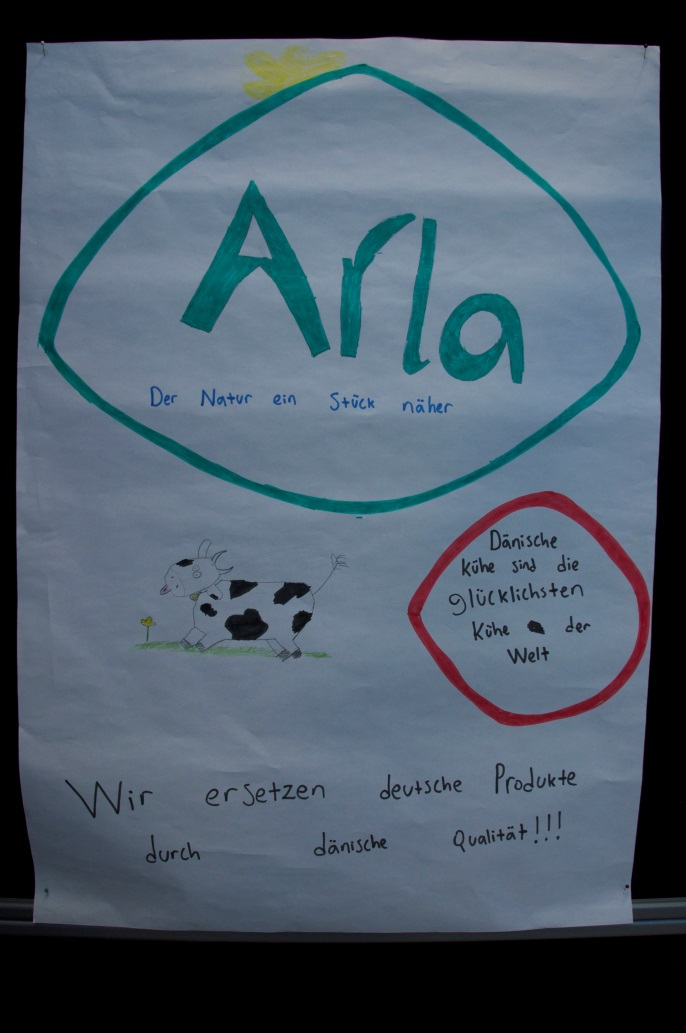 Arla
Der Natur ein Stück näher
Dänische
Kühe sind die
glücklichsten
Kühe der
Welt
Wir ersetzen deutsche Produkte
durch dänische Qualität!!!